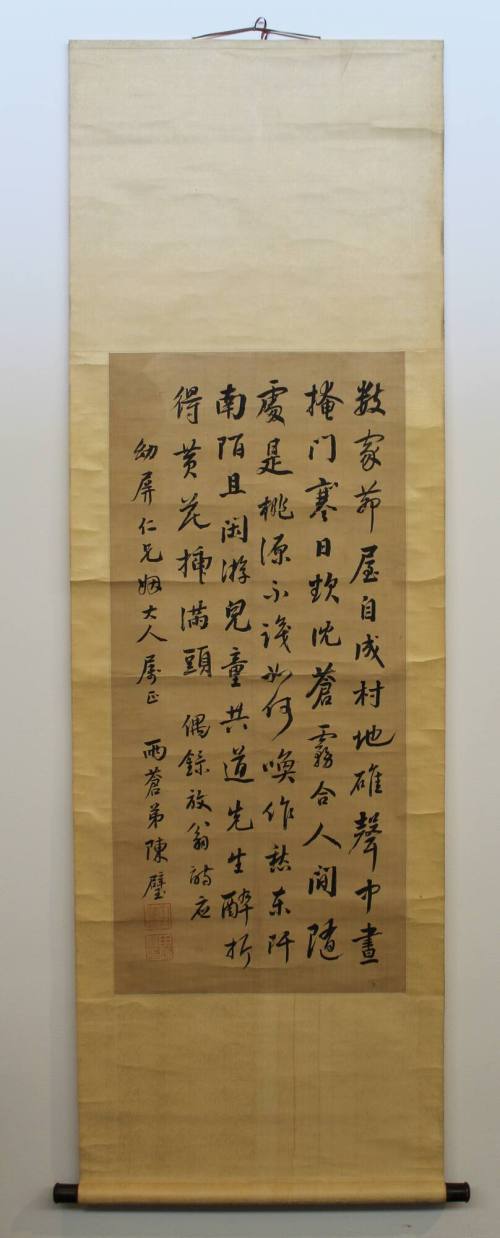 數家茆屋自成村地碓聲中晝
掩門寒日欲沈蒼霧合人間隨
處是桃源不識如何喚作愁東阡
南陌且閑游兒童共道先生醉折
得黃花插滿頭 偶錄放翁詩应
幼屏仁兄姻大人屬正 雨蒼弟陳璧